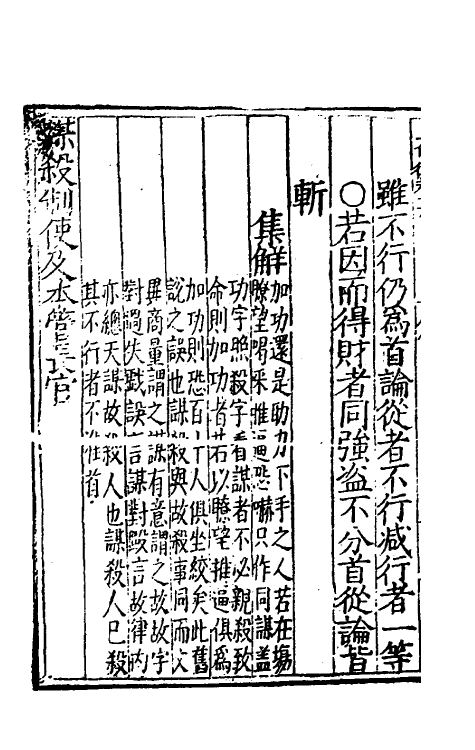 雖不行仍為首論從者不行减行者一等
○若因而得財者同強盗不分首從論皆
斬
集解
加功還是助力下手之人若在塲
瞭望喝采推逼恐嚇只作同謀盖
功字照殺字看謀者不必親殺致
命則加功者若以瞭望推逼俱為
加功則恐百丁人俱坐絞矣此舊
說之誤也謀殺與故殺事同而
畢商量謂之謀有意謂之故故字
對過失戲誤言謀對毆言故律
亦總天謀故殺人也謀殺人已殺
其不行者不在首
謀殺制使及本管長官